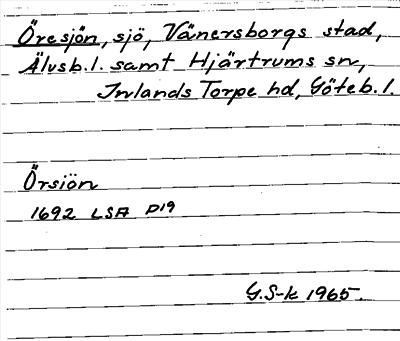 Öresjön, sjö, Vänersborgs stad,
Älvsb.l. samt Hjärtrums sn,
Inlands Torpe hd, Göteb.l.
Örsiön
1692 LSA P19
G.S-k 1965.